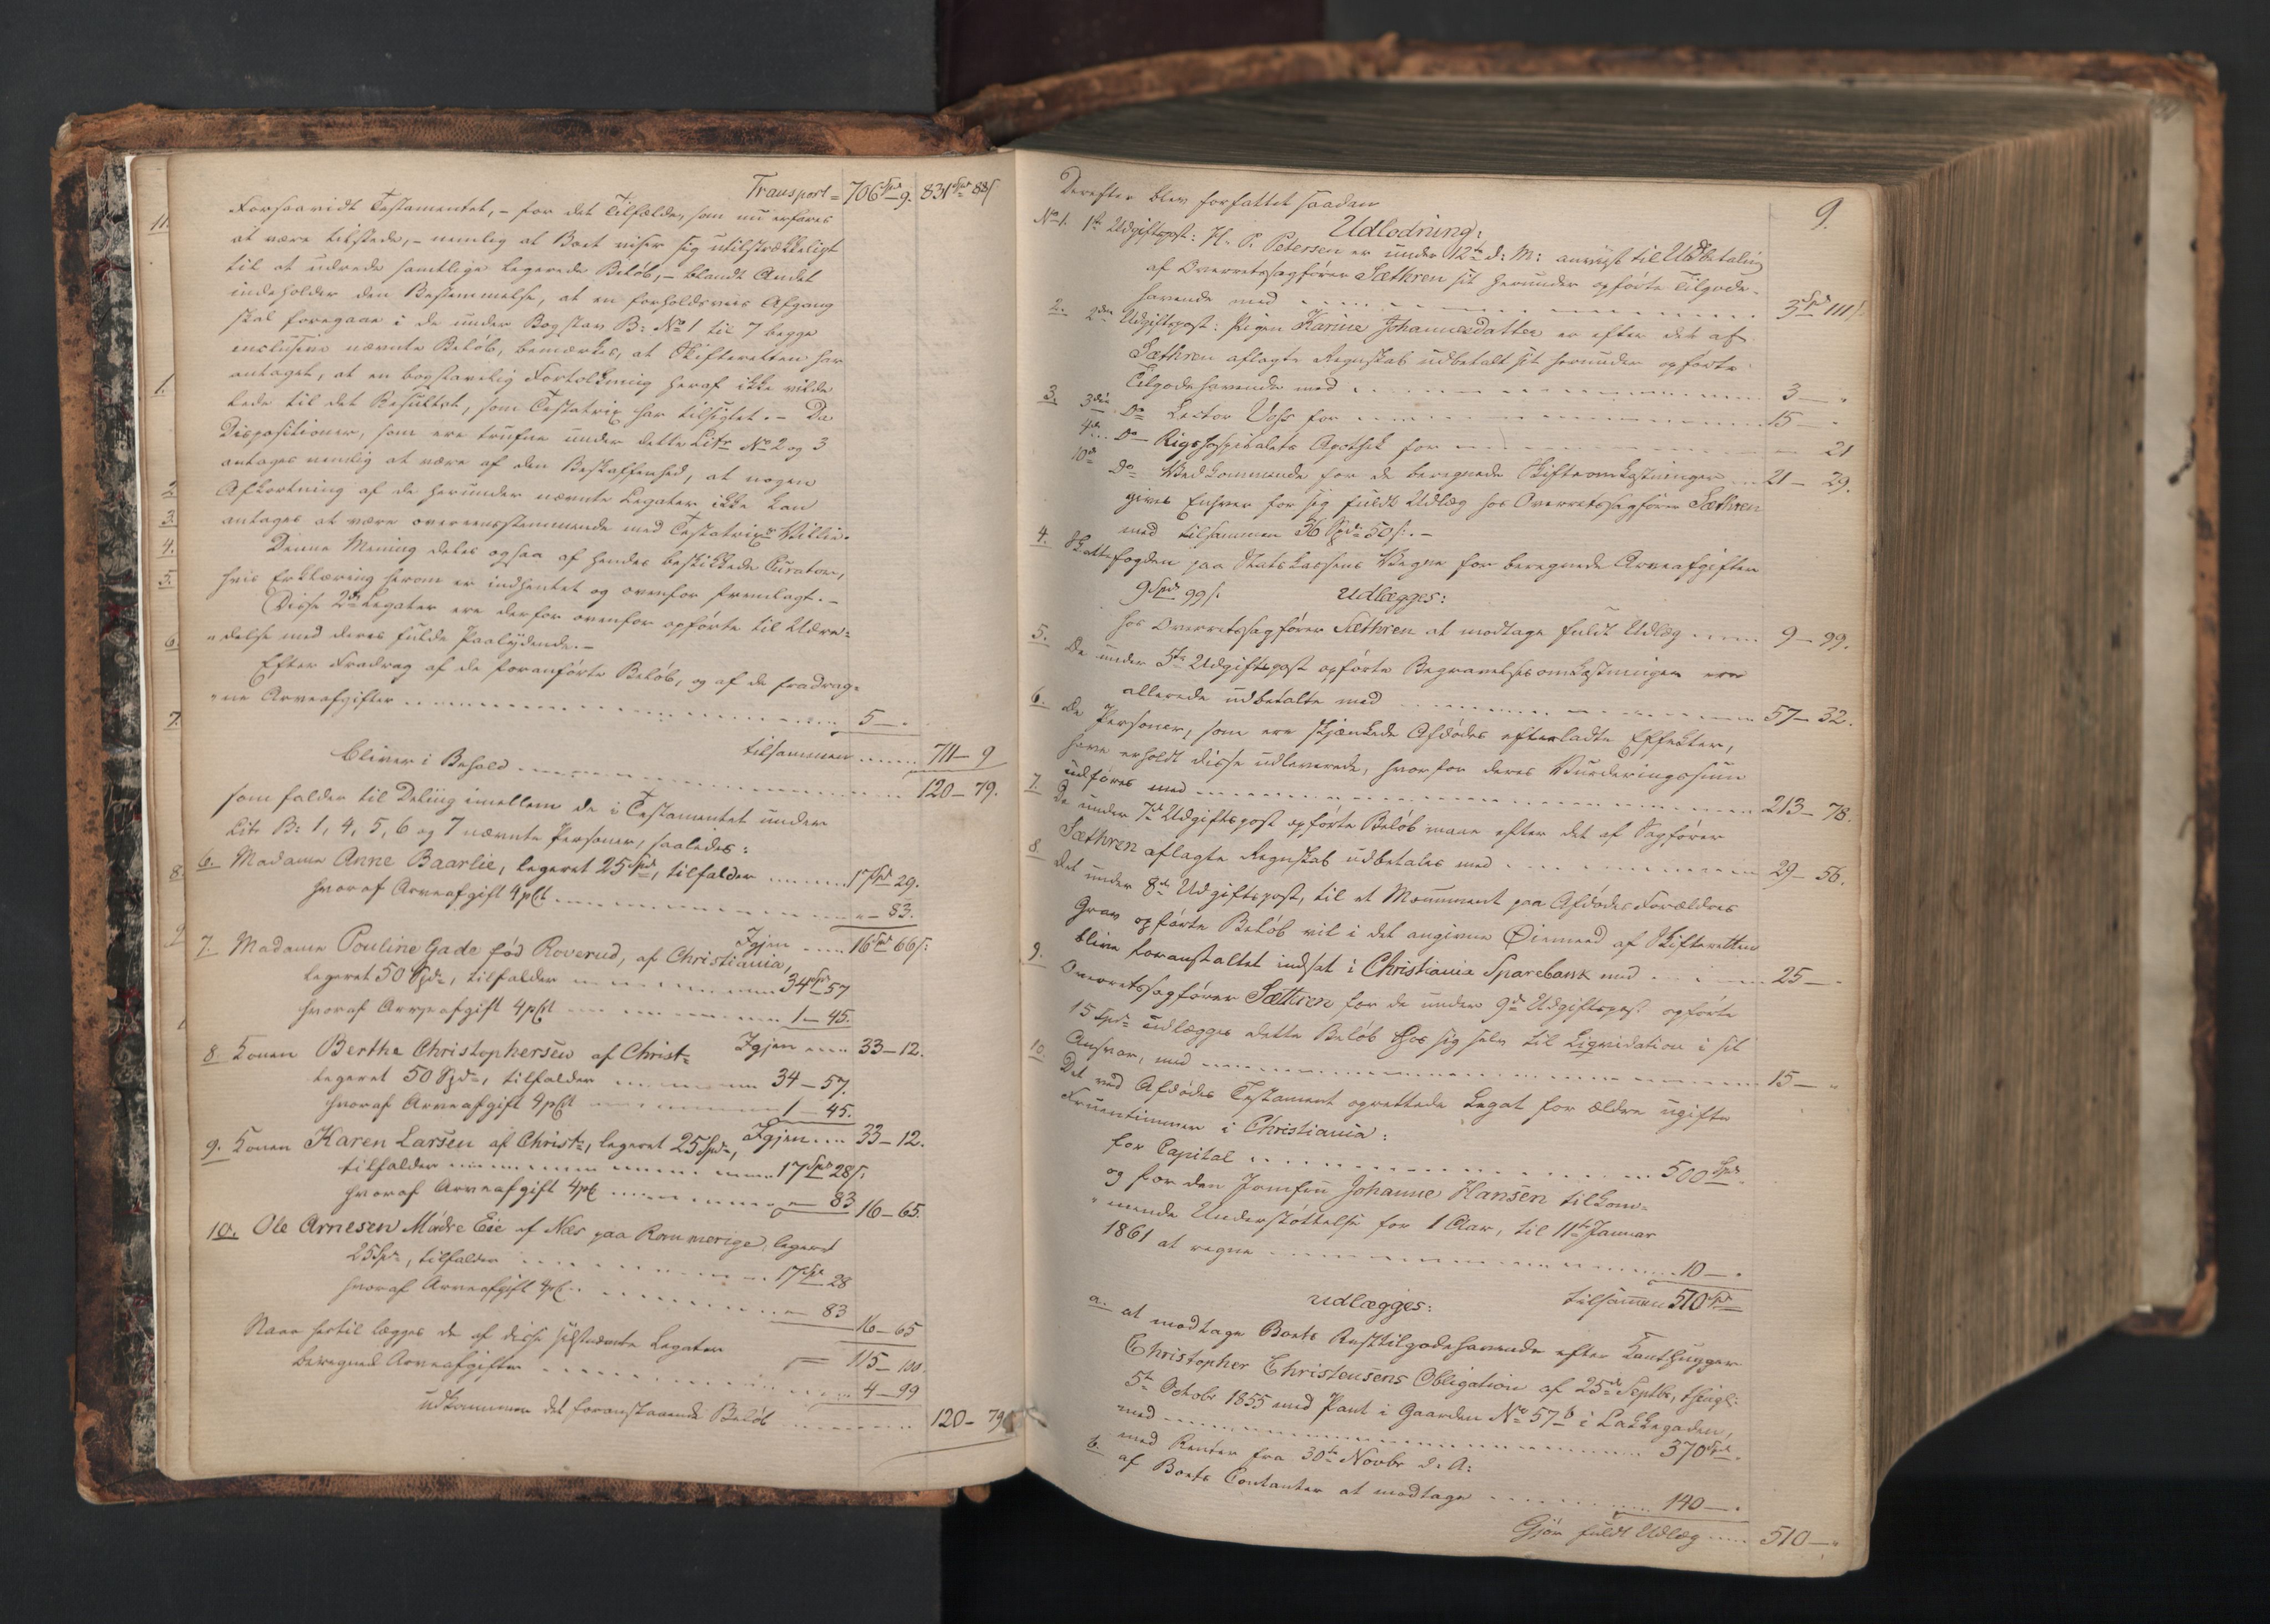 Transport = 706 Spd 9. 831 Spd 88 s
Forsaavidt Testamentet, – for det Tilfælde, som nu erfares
at være tilstede, – nemlig at Boet viser sig utilstrækkeligt
til at udrede samtlige legerede Beløb, – blandt Andet
indeholder den Bestemmelse, at en forholdsviis Afgang
skal foregaae i de under Bogstav B: No 1 til 7 begge
inclusive nævnte Beløb, bemærkes, at Skifteretten har
antaget, at en bogstavelig Fortolkning heraf ikke vilde
lede til det Resultat, som Testatrix har tilsigtet. – De
Dispositioner, som ere trufne under dette Litr No 2 og 3
antages nemlig at være af den Beskaffenhed, at nogen
Afkortning af de herunder nævnte Legater ikke kan
antages at være overeensstemmende med Testatrix's Villie.
Denne Mening deles ogsaa af hendes beskikkede Curator,
hvis Erklæring herom er indhentet og ovenfor fremlagt. –
Disse 2de Legater ere derfor ovenfor opførte til Udre-
delse med deres fulde Paalydende. –
Efter Fradrag af de foranførte Beløb, og af de fradrag-
ne Arveafgifter 5 – "
tilsammen 711 – 9
bliver i Behold 120 – 79.
som falder til Deling imellem de i Testamentet under
Litr B: 1, 4, 5, 6 og 7 nævnte Personer, saaledes:
6. Madame Anne Baarlie, legeret 25 Spd, tilfalder 17 Spd 29.
hvoraf Arveafgift 4 pCt " – 83.
Igjen 16 Spd 66 s:
7. Madame Pouline Gade fød Roverud, af Christiania,
legeret 50 Spd, tilfalder 34 Spd 57
hvoraf Arveafgift 4 pCt 1 – 45.
Igjen 33 – 12.
8. Konen Berthe Christophersen af Christ.
legeret 50 Spd, tilfalder 34 – 57.
hvoraf Arveafgift 4 pCt 1 – 45.
Igjen 33 – 12.
9. Konen Karen Larsen af Christ., legeret 25 Spd,
tilfalder 17 Spd 28 s:
hvoraf Arveafgift 4 pC " – 83
16 – 65.
10. Ole Arnesen Mødre Eie af Næs paa Rommerige, legeret
25 Spd, tilfalder 17 Spd 28
hvoraf Arveafgift 4 pC " – 83
16 – 65
115 – 100.
Naar hertil lægges de af disse sidstnævnte Legater
beregned Arveafgifter 4 – 99
udkommer det foranstaaende Beløb 120 – 79
9.
Derefter blev forfattet saadan
Udlodning:
No 1. 1ste Udgiftspost: H. P. Petersen er under 12te d: M: anviist til Udbetaling
af Overretssagfører Sæthren sit herunder opførte Tilgode-
havende med 3 Spd 111 s
2. 2den Udgiftspost: Pigen Karine Johannesdatter er efter det af
Sæthren aflagte Regnskab udbetalt sit herunder opførte
Tilgodehavende med 3 – "
3. 3die Do Lector Voss for 15 – "
4de Do – Rigshospitalets Apothek for " – 21
10de Do – Vedkommende for de beregnede Skifteomkostninger 21 – 29.
gives Enhver for sig fuldt Udlæg hos Overretssagfører Sæthren
med tilsammen 36 Spd 50 s. –
4. Skattefogden paa Statskassens Vegne for beregnede Arveafgifter
9 Spd 99 s: Udlægges:
hos Overretssagfører Sæthren at modtage fuldt Udlæg 9 – 99.
5. De under 5te Udgiftspost opførte Begravelsesomkostninger ere
allerede udbetalte med 57 – 32.
6. De Personer, som ere skjænkede Afdødes efterladte Effecter,
have erholdt disse udleverede, hvorfor deres Vurderingssum
udføres med 213 – 78.
7. De under 7de Udgiftspost opførte Beløb maae efter det af Sagfører
Sæthren aflagte Regnskab udbetales med 29 – 56.
8. Det under 8de Udgiftspost, til et Monument paa Afdødes Forældres
Grav opførte Beløb vil i det angivne Øiemeed af Skifteretten
blive foranstaltet indsat i Christiania Sparebank med 25 – "
9. Overretssagfører Sæthren for de under 9de Udgiftspost opførte
15 Spd udlægges dette Beløb hos sig selv til Liqvidation i sit
Ansvar, med 15 – "
10. Det ved Afdødes Testament oprettede Legat for ældre ugifte
Fruentimmer i Christiania:
for Capital 500 Spd
og for den Jomfru Johanne Hansen tilkom-
mende Understøttelse for 1 Aar, til 11te Januar
1861 at regne 10 – "
tilsammen 510 Spd
udlægges:
a. at modtage Boets Resttilgodehavende efter
Christopher Christensens Obligation af 25de Septbr, thingl:
5te Octobr 1855 med Pant i Gaarden No 57 b i Lakkegaden,
med 370 Spd.
med Renter fra 30te Novbr d: A:
b. af Boets Contanter at modtage 140 – "
Gjør fuldt Udlæg 510 – "